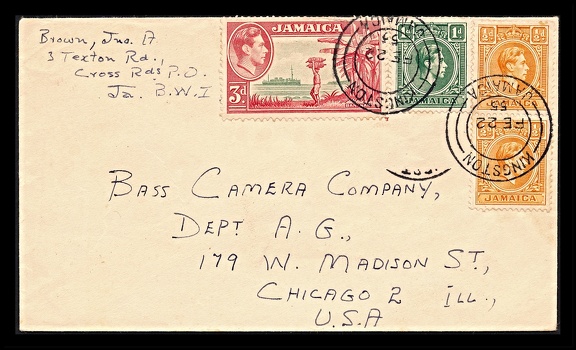 Brown, Jno. A
3 Texton Rd.,
Cross Rds P.O.
Ja. B.W.I
JAMAICA
3d
1d
JAMAICA
½d
JAMAICA
½d
JAMAICA
KINGSTON
FE 22
53
JAMAICA
KINGSTON
FE 22
53
JAMAICA
BASS CAMERA COMPANY,
DEPT A. G.,
179 W. MADISON ST.,
CHICAGO 2 ILL.,
U.S.A